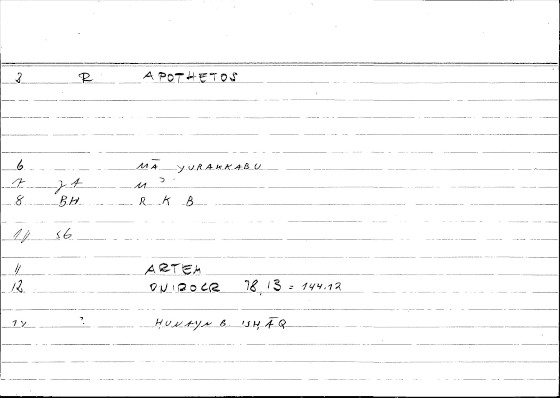 3 R APOTHETOS
6 MĀ YURAKKABU
7 M
8 BH R K B
56
11 ARTEM
12 ONIROCR 78,13 = 144.12
? HUNAYN B. ISHĀQ